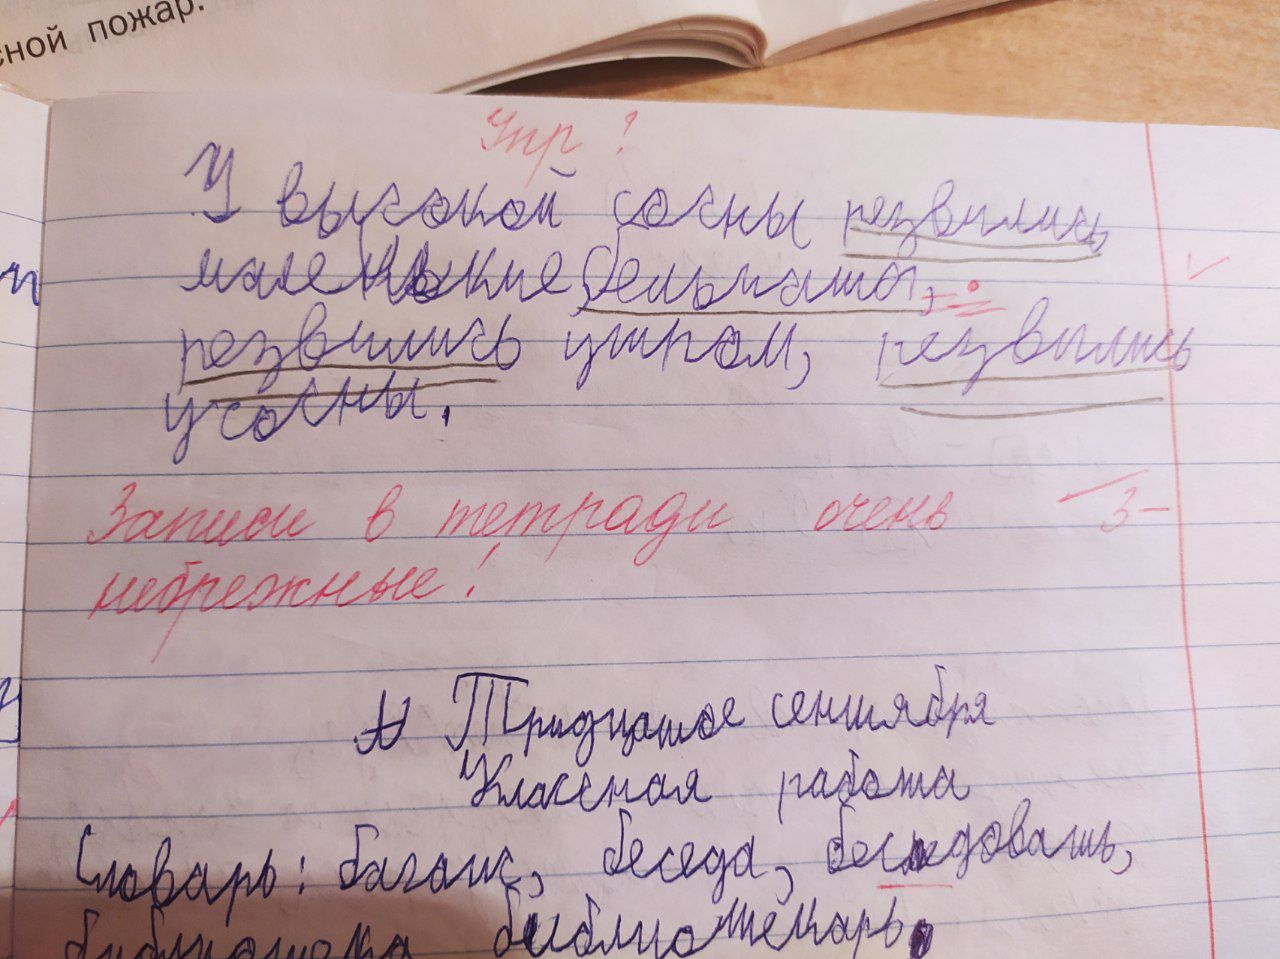 сной пожар.
Упр?
У высокой сосны резвились
маленькие бельчата.
резвились утром, резвились
у сосны.
Записи в тетради очень 3-
небрежные!
Тридцатое сентября
Классная работа
Словарь: багаж, беседа, беседовать,
библиотека библиотекарь.